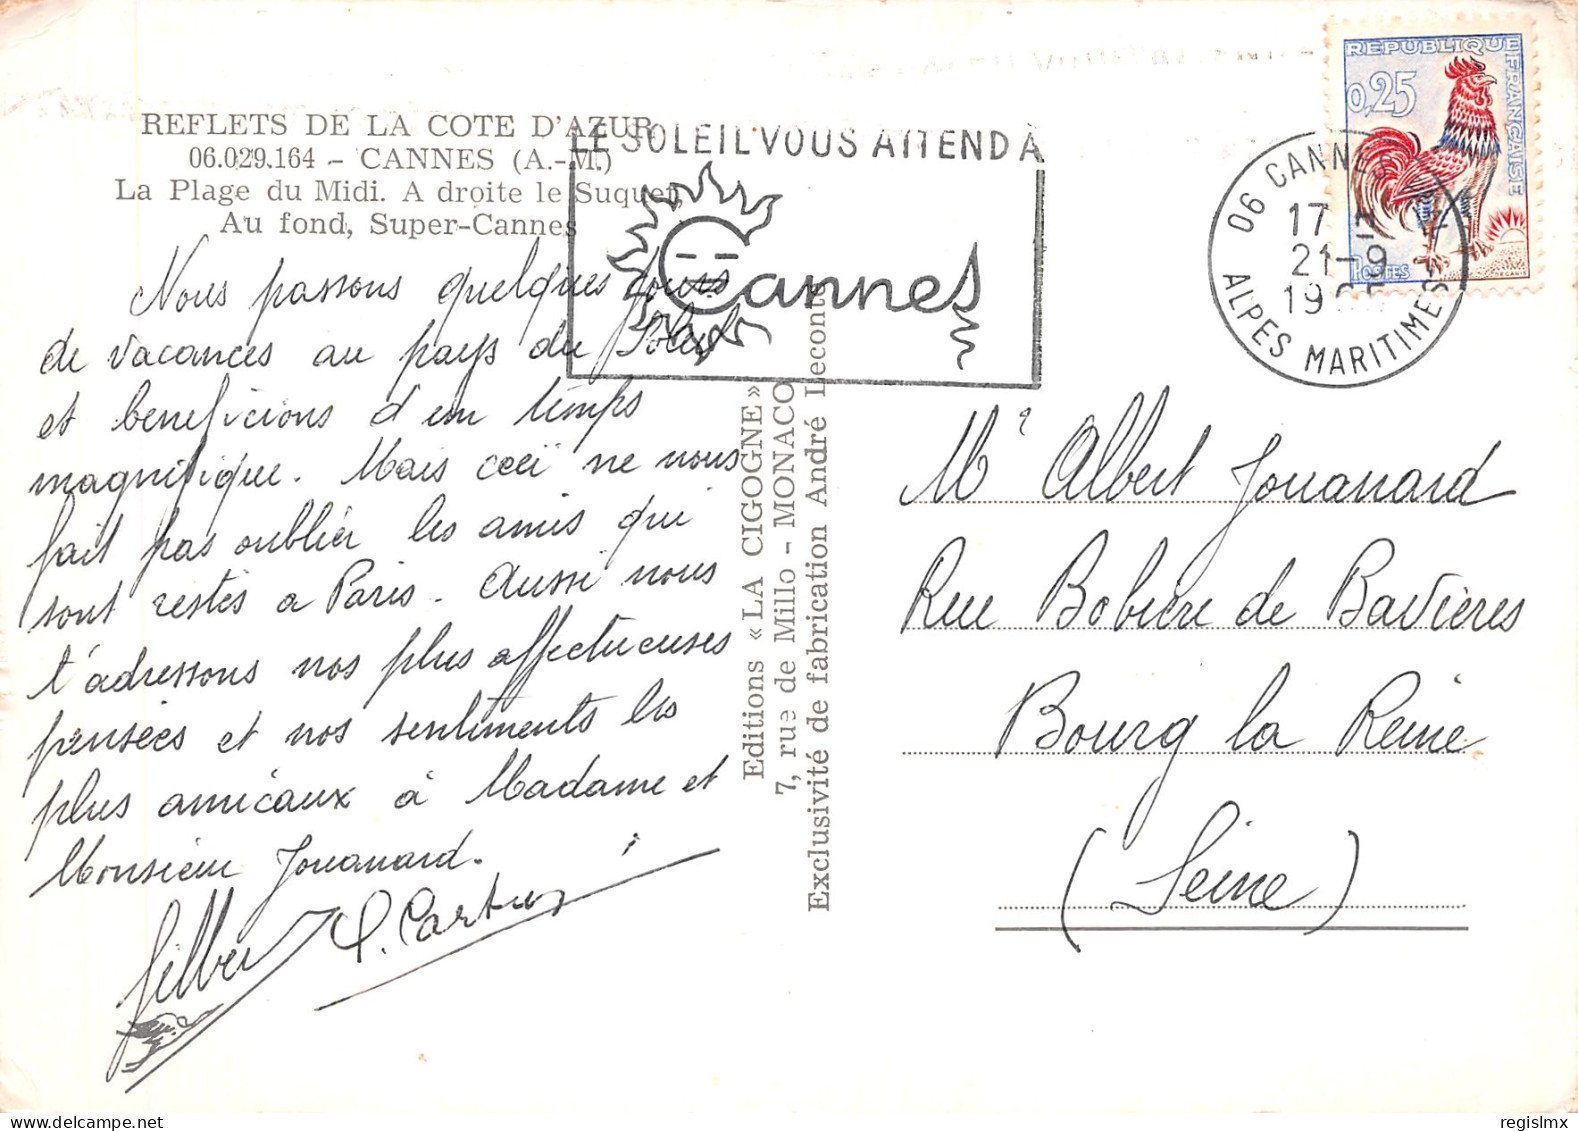 REFLETS DE LA COTE D'AZUR
06.029.164 - CANNES (A.-M.)
La Plage du Midi. A droite le Suquet
Au fond, Super-Cannes
Nous passons quelques jours
de vacances au pays du Soleil
et beneficions d'un temps
magnifique. Mais ceci ne nous
fait pas oublier les amis qui
sont restés a Paris. Aussi nous
t'adressons nos plus affectueuses
pensées et nos sentiments les
plus amicaux à Madame et
Monsieur Jouanard.
LE SOLEIL VOUS ATTEND À
Cannes
Editions « LA CIGOGNE »
7, rue de Millo - MONACO
Exclusivité de fabrication André Leconte
REPUBLIQUE FRANÇAISE
0,25
POSTES
06 CANNES
17
21-9
19
ALPES MARITIMES
Mr Albert Jouanard
Rue Bobière de Bavières
Bourg la Reine
(Seine)
regislmx